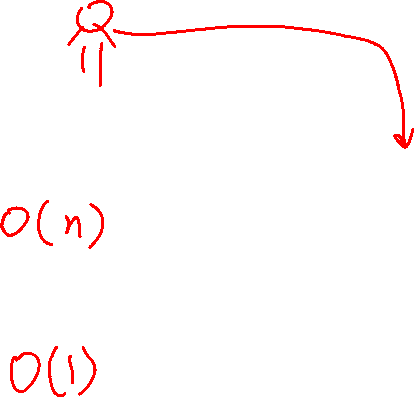 O(n)
O(1)